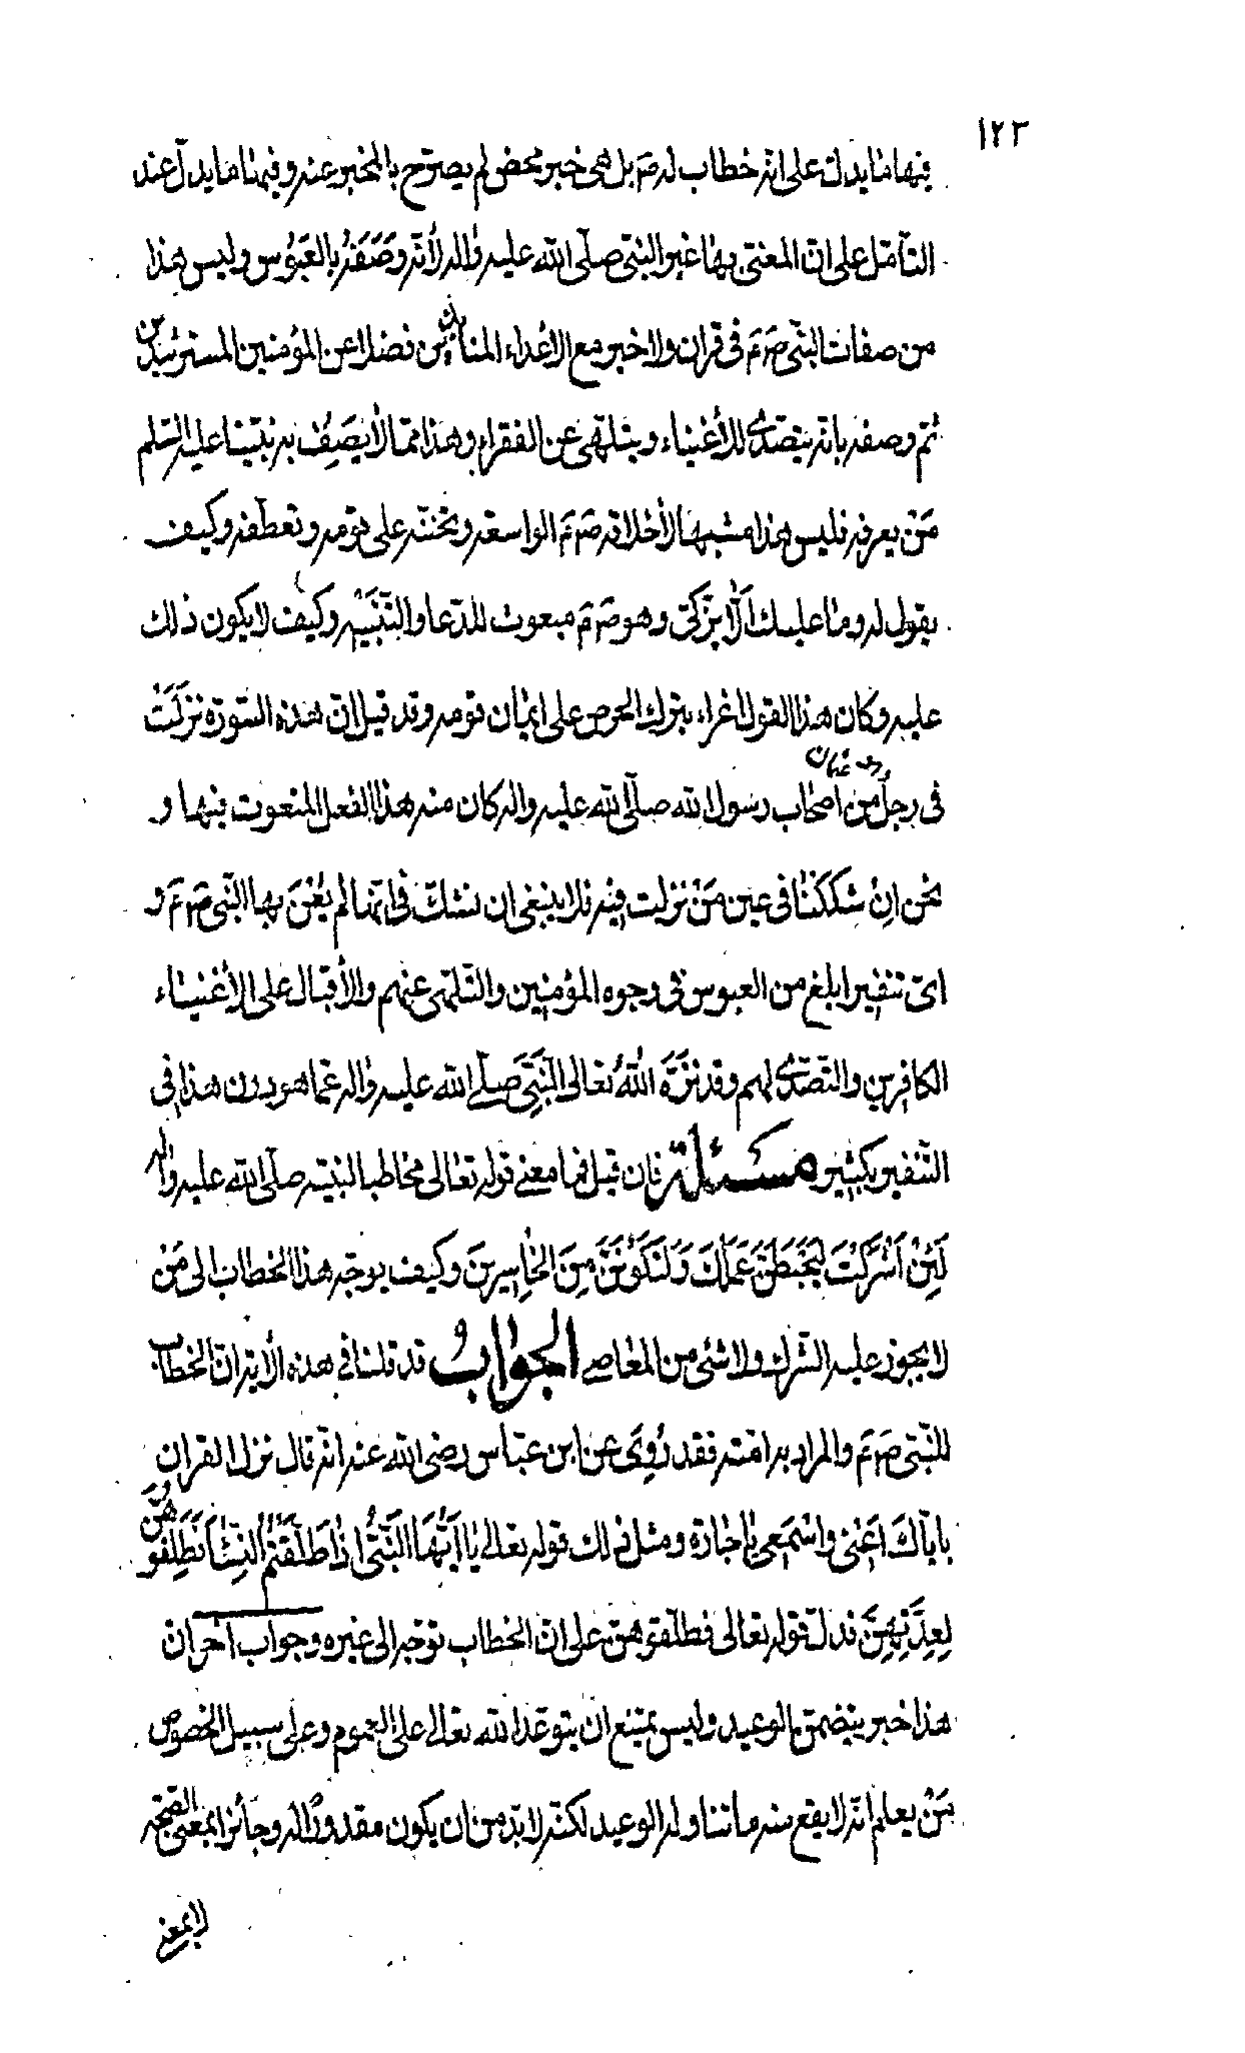 ١٢٣
فيها ما يدل على انه خطاب له صم بل هى خبر محض لم يصرح بالمخبر عنه وفيها ما يدل عند
التأمل على ان المعنى بها غير النبى صلى الله عليه واله لأنه وصفه بالعبوس وليس هذا
من صفات النبى صم فى قران ولا خبر مع الأعداء المنابذين فضلا عن المؤمنين المسترشدين
ثم وصفه بانه يتصدى للأغنياء ويتلهى عن الفقراء وهذا مما لا يصف به نبينا عليه السلم
من يعرفه فليس هذا مشبها لأخلاقه صم الواسعة وتحننه على قومه وتعطفه وكيف
يقول له وما عليك الا يزكى وهو صم مبعوث للدعا والتنبيه وكيف لا يكون ذلك
عليه وكان هذا القول اغراء بترك الحرص على ايمان قومه وقد قيل ان هذه السورة نزلت
فى رجل من اصحاب رسول الله صلى الله عليه واله كان منه هذا الفعل المنعوت فيها و
وهو عثمان
نحن ان شككنا فى عين من نزلت فيه فلا ينبغى ان نشك فى انها لم يعن بها النبى صم و
اى تنفير ابلغ من العبوس فى وجوه المؤمنين والتلهى عنهم والأقبال على الأغنياء
الكافرين والتصدى لهم وقد نزه الله تعالى النبى صلى الله عليه واله عما هو دون هذا فى
التنفير بكثير مسئلة فان قيل فما معنى قوله تعالى مخاطبا لنبيه صلى الله عليه واله
لَئِنْ اَشْرَكْتَ لَيَحْبَطَنَّ عَمَلُكَ وَلَتَكُونَنَّ مِنَ الْخَاسِرِينَ وكيف يوجه هذا الخطاب الى من
لا يجوز عليه الشرك ولا شئ من المعاصى الجواب قد قلنا فى هذه الأية ان الخطاب
للنبى صم والمراد به امته فقد روى عن ابن عباس رضى الله عنه انه قال نزل القران
باياك اعنى واسمعى يا جارة ومثل ذلك قوله تعالى يا ايها النبى اذا طلقتم النسا فطلقوهن
لعدتهن فدل قوله تعالى فطلقوهن على ان الخطاب توجه الى غيره وجواب اخر ان
هذا خبر يتضمن الوعيد وليس يمتنع ان يتوعد الله تعالى على العموم وعلى سبيل الخصوص
من يعلم انه لا يقع منه ما تناوله الوعيد لكنه لا بد من ان يكون مقدورا له وجائزا بمعنى الصحة
لا بمعنى